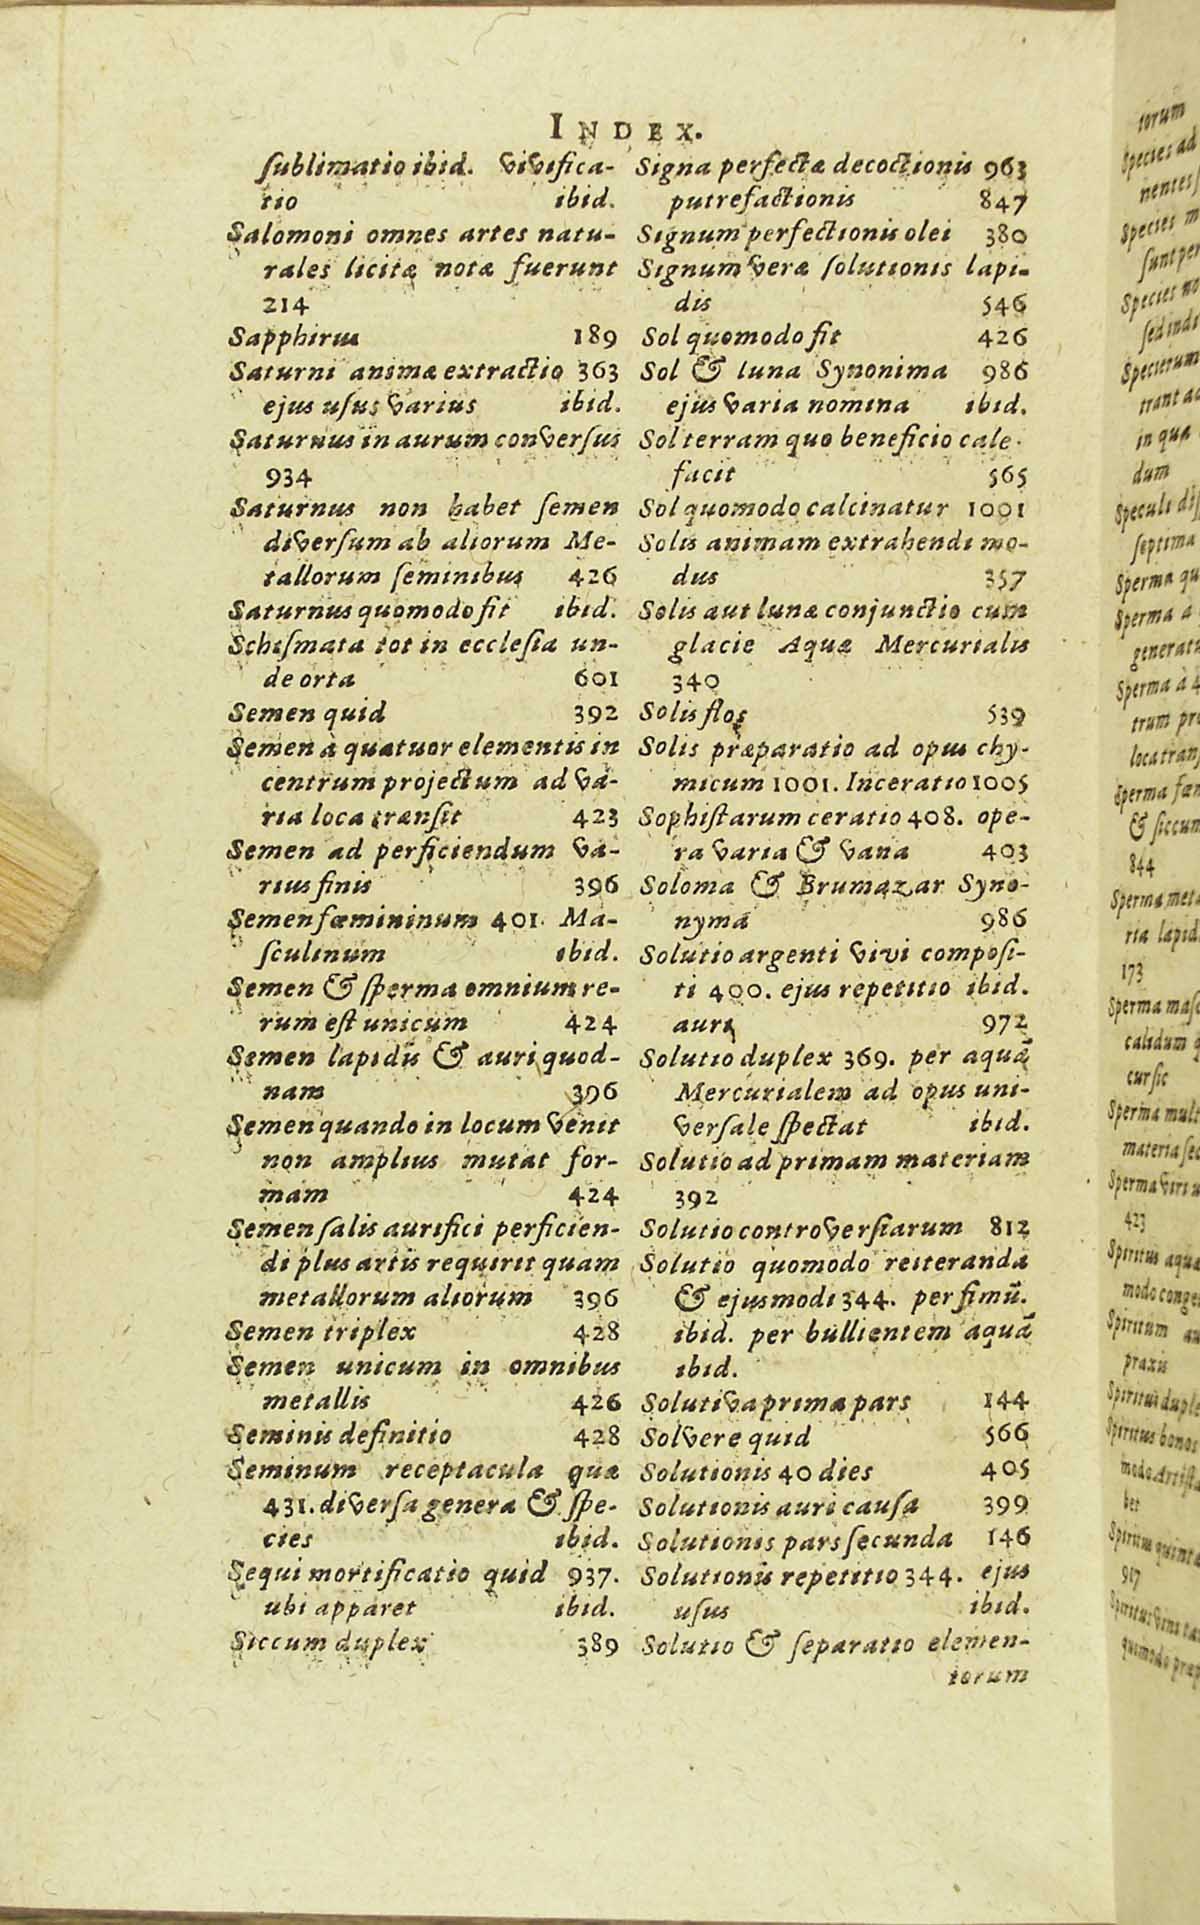 INDEX.
ſublimatio ibid. vivifica-
tio ibid.
Salomoni omnes artes natu-
rales licitæ notæ fuerunt
214
Sapphirus 189
Saturni animæ extractio 363
ejus uſus varius ibid.
Saturnus in aurum converſus
934
Saturnus non habet ſemen
diverſum ab aliorum Me-
tallorum ſeminibus 426
Saturnus quomodo fit ibid.
Schiſmata tot in eccleſia un-
de orta 601
Semen quid 392
Semen à quatuor elementis in
centrum projectum ad va-
ria loca tranſit 423
Semen ad perficiendum va-
rius finis 396
Semen fœmininum 401. Ma-
ſculinum ibid.
Semen & ſperma omnium re-
rum eſt unicum 424
Semen lapidis & auri quod-
nam 396
Semen quando in locum venit
non amplius mutat for-
mam 424
Semen ſalis aurifici perficien-
di plus artis requirit quam
metallorum aliorum 396
Semen triplex 428
Semen unicum in omnibus
metallis 426
Seminis definitio 428
Seminum receptacula quæ
431. diverſa genera & ſpe-
cies ibid.
Sequi mortificatio quid 937.
ubi apparet ibid.
Siccum duplex 389
Signa perfectæ decoctionis 963
putrefactionis 847
Signum perfectionis olei 380
Signum veræ ſolutionis lapi-
dis 546
Sol quomodo fit 426
Sol & luna Synonima 986
ejus varia nomina ibid.
Sol terram quo beneficio cale-
facit 565
Sol quomodo calcinatur 1001
Solis animam extrahendi mo-
dus 357
Solis aut lunæ conjunctio cum
glacie Aquæ Mercurialis
340
Solis flos 539
Solis præparatio ad opus chy-
micum 1001. Inceratio 1005
Sophiſtarum ceratio 408. ope-
ra varia & vana 403
Soloma & Brumazar Syno-
nyma 986
Solutio argenti vivi compoſi-
ti 400. ejus repetitio ibid.
auri 972
Solutio duplex 369. per aquã
Mercurialem ad opus uni-
verſale ſpectat ibid.
Solutio ad primam materiam
392
Solutio controverſiarum 812
Solutio quomodo reiteranda
& ejusmodi 344. per fimũ.
ibid. per bullientem aquã
ibid.
Solutiva prima pars 144
Solvere quid 566
Solutionis 40 dies 405
Solutionis auri cauſa 399
Solutionis pars ſecunda 146
Solutionis repetitio 344. ejus
uſus ibid.
Solutio & ſeparatio elemen-
torum
torum
Species ad
nentes
Species m
ſunt per
Species no
ſed indi
Specierum
trant ad
in qua
dum
Speculi diſ
ſeptima
Sperma qu
Sperma a
generatu
Sperma à 4
trum pro
loca tranſ
Sperma fœm
& ſiccum
844
Sperma meta
ria lapid
173
Sperma maſc
calidum q
cur ſic
Sperma mult
materia ſec
Sperma viri u
423
Spiritus aqua
modo conge
Spiritum au
praxis
Spiritus duple
Spiritus bonos
modo Artiſta
bet
Spiritum quinta
917
Spiritus vini tar
quomodo præp